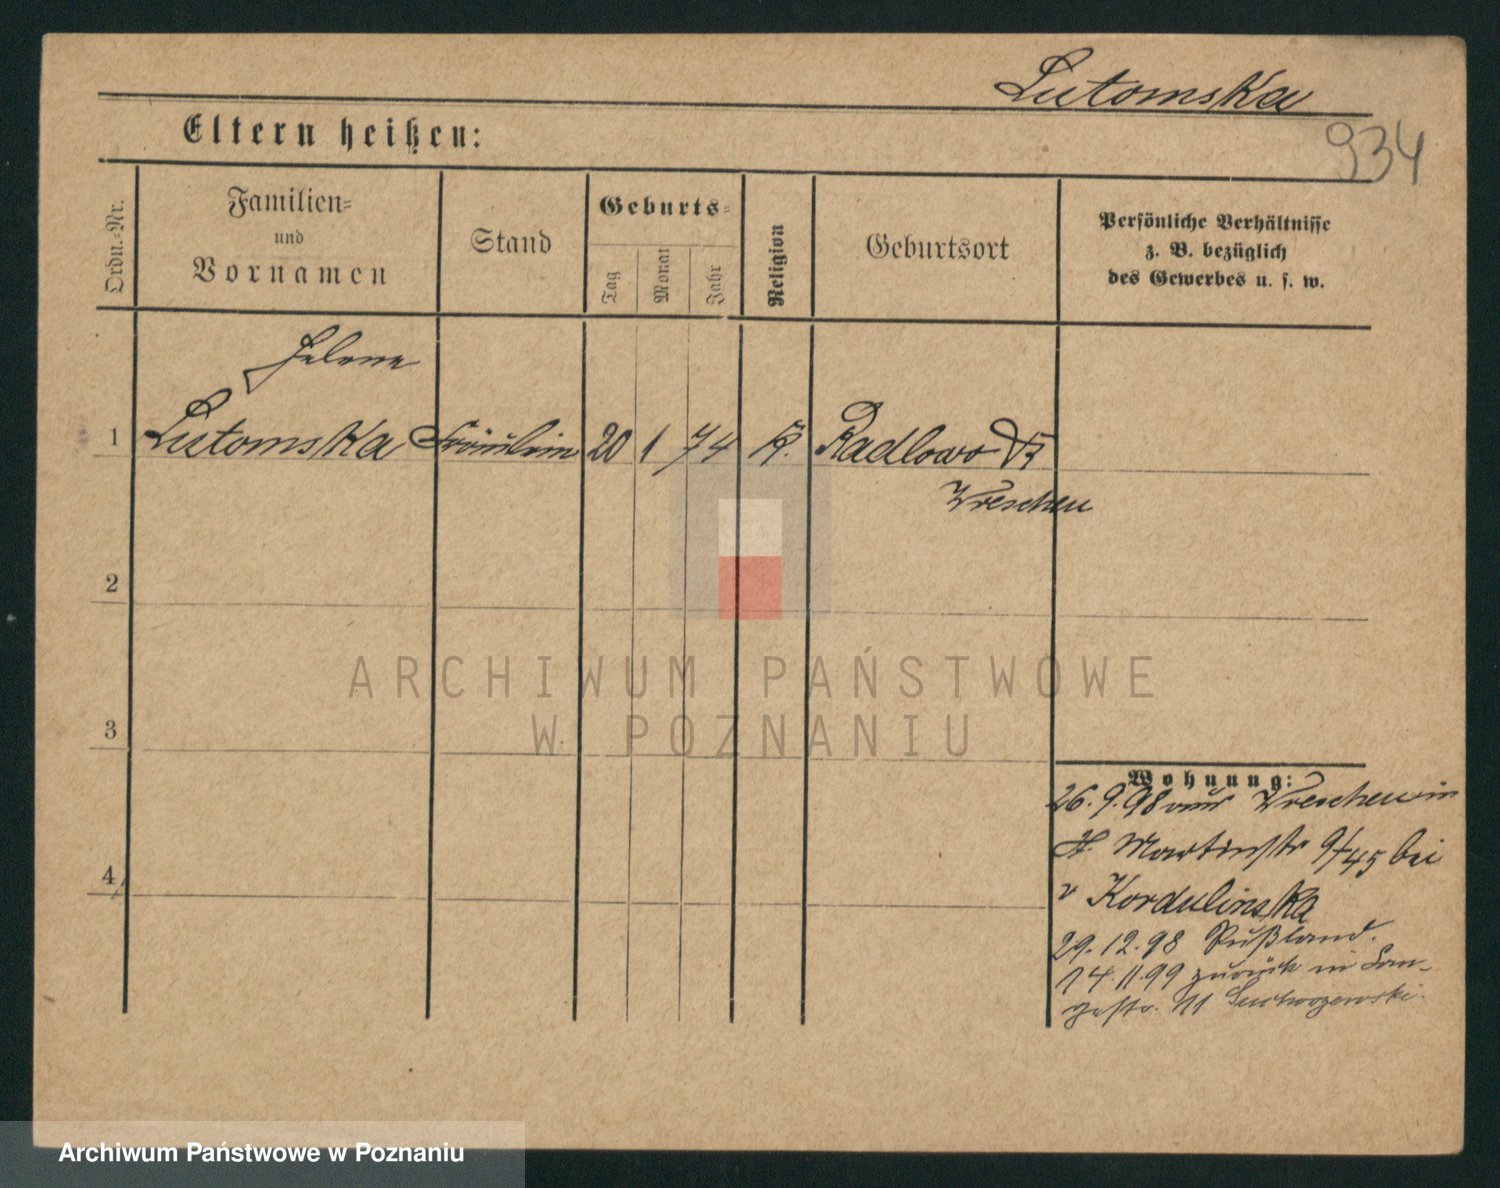 Lutomska
934
Eltern heißen:
Ordn.-Nr.
Familien-
und
Vornamen
Stand
Geburts-
Tag
Monat
Jahr
Religion
Geburtsort
Persönliche Verhältnisse
z. B. bezüglich
des Gewerbes u. s. w.
Helene
1 Lutomska Fräulein 20 1 74 K. Radlowo
Wreschen
2
3
4
Wohnung:
26.9.98 aus Wreschen in
St. Martinstr 9/45 bei
v Kordulinska
29.12.98 Rußland.
14.11.99 zurück in Lan-
gestr. 11 Suchorzewski.
ARCHIWUM PAŃSTWOWE
W POZNANIU
Archiwum Państwowe w Poznaniu